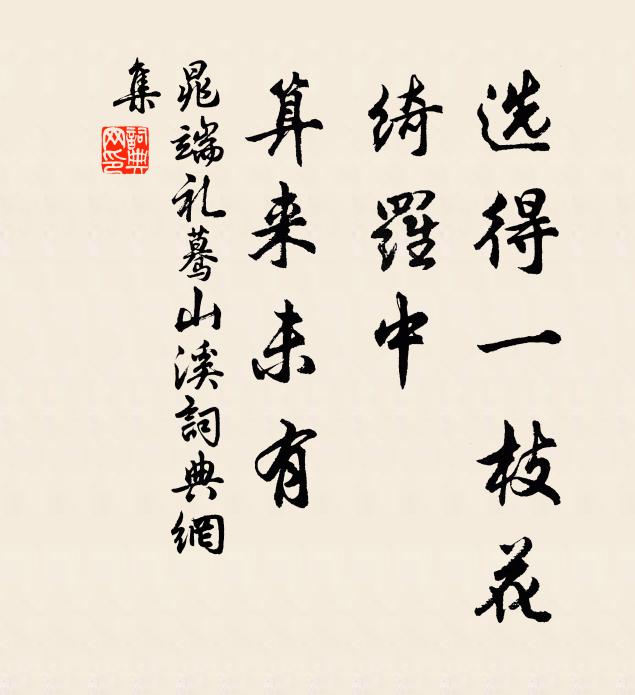 选得一枝花
绮羅中
算来未有
晁端礼蓦山溪詞典網
集
詞典
网印